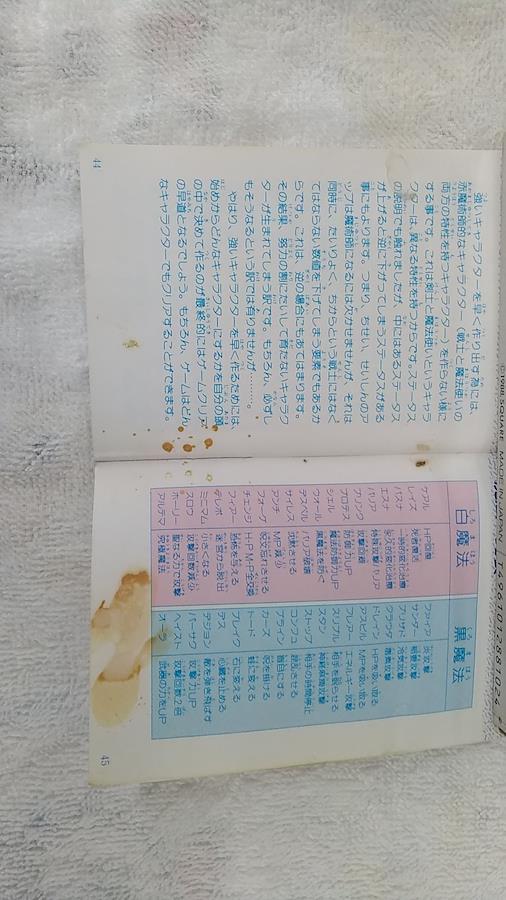 強いキャラクターを早く作り出す為には、
赤魔術師的なキャラクター(戦士と魔法使いの
両方の特性を持つキャラクター)を作らない様に
する事です。これは剣士と魔法使いというキャラ
クターは、異なる特性を持つからです。ステータス
の説明でも触れましたが、中にはあるステータス
が上がると逆に下がってしまうステータスがある
事にもよります。つまり、ちせい、せいしんのア
ップは魔術師になるには欠かせませんが、それは
同時に、たいりょく、ちからという戦士にはなく
てはならない数値を下げてしまう要素でもあるか
らです。これは、逆の場合にもあてはまります。
その結果、努力の割にたいして育たないキャラク
ターが生まれてしまう訳です。もちろん、必ずし
もそうなるという訳では有りませんが………。
やはり、強いキャラクターを早く作るためには、
始めからどんなキャラクターにするかを自分の頭
の中で決めて作るのが最終的にはゲームクリア
の早道となるでしょう。もちろん、ゲームはどん
なキャラクターでもクリアすることができます。
44
©1988, SQUARE MADE IN JAPAN
4961012881024
白魔法 黒魔法
ケアル HP回復 ファイア 炎攻撃
レイズ 死者復活 サンダー 稲妻攻撃
バスナ 一時的変化治療 ブリザド 冷気攻撃
エスナ 永久的変化治療 クラウダ 毒素攻撃
バリア 特殊攻撃バリア ドレイン HPを吸い取る
ブリンク 攻撃回避 アスピル MPを吸い取る
プロテス 防御力UP フレアー エネルギー攻撃
シェル 魔法防御力UP スリプル 相手を眠らせる
ウォール 黒魔法を防ぐ スタン 神経麻痺攻撃
デスペル バリア破壊 ストップ 相手の時間停止
サイレス 沈黙させる コンフュ 混乱させる
アンチ MP減少 ブライン 盲目にする
フォーグ 呪文忘れさせる カーズ 呪を掛ける
チェンジ H・P M・P全交換 トード 蛙に変える
フィアー 恐怖を与える ブレイク 石に変える
テレポ 迷宮から脱出 デス 心臓を止める
ミニマム 小さくなる デジョン 敵を弾き飛ばす
スロウ 攻撃回数減少 バーサク 攻撃力UP
ホーリー 聖なる力で攻撃 ヘイスト 攻撃回数2倍
アルテマ 究極魔法 オーラ 武器の力をUP
45